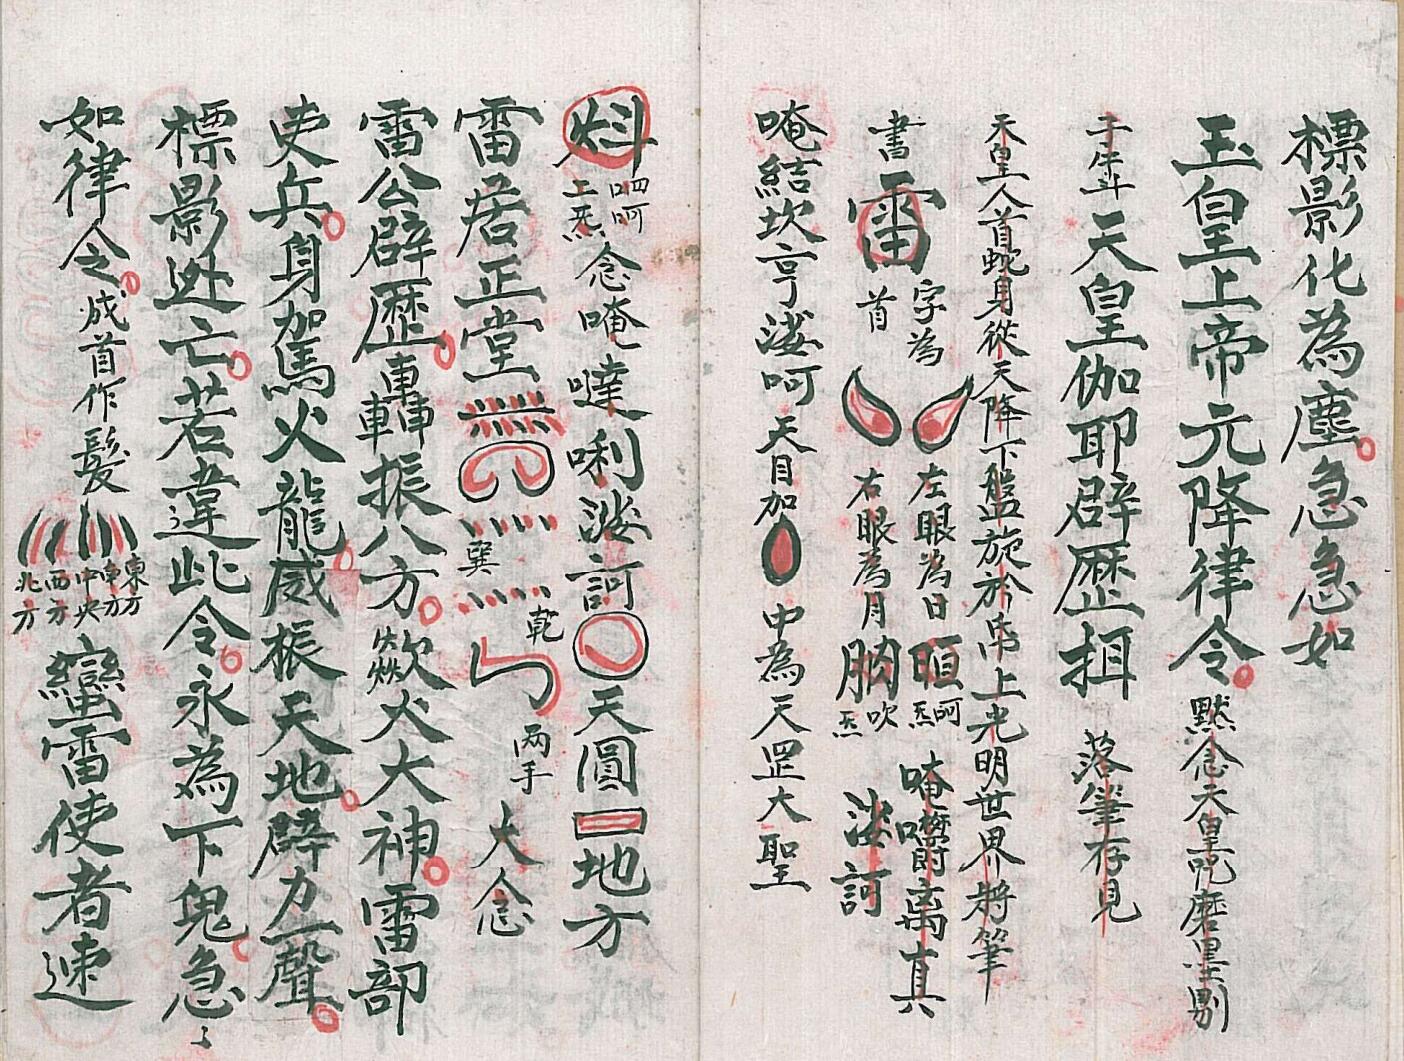 標影化為塵急急如
玉皇上帝元降律令默念天皇咒磨墨剔
天皇伽耶辟歷揖落筆存見
天皇人首蛇身從天降下盤旋於
上光明世界將筆
書雷字為首
左眼為日呵炁唵嚼
右眼為月吹炁
唵結坎亨娑呵天目加中為天罡大聖
呬呵
上炁念唵噠唎娑訶天圓地方
雷居正堂巽乾兩手大念
雷公辟歷轟振八方欻火大神雷部
吏兵身駕火龍威振天地劈力一聲
標影迯亡若違此令永為下鬼急〻
如律令成首作髮東方南方中央西方北方蠻雷使者速